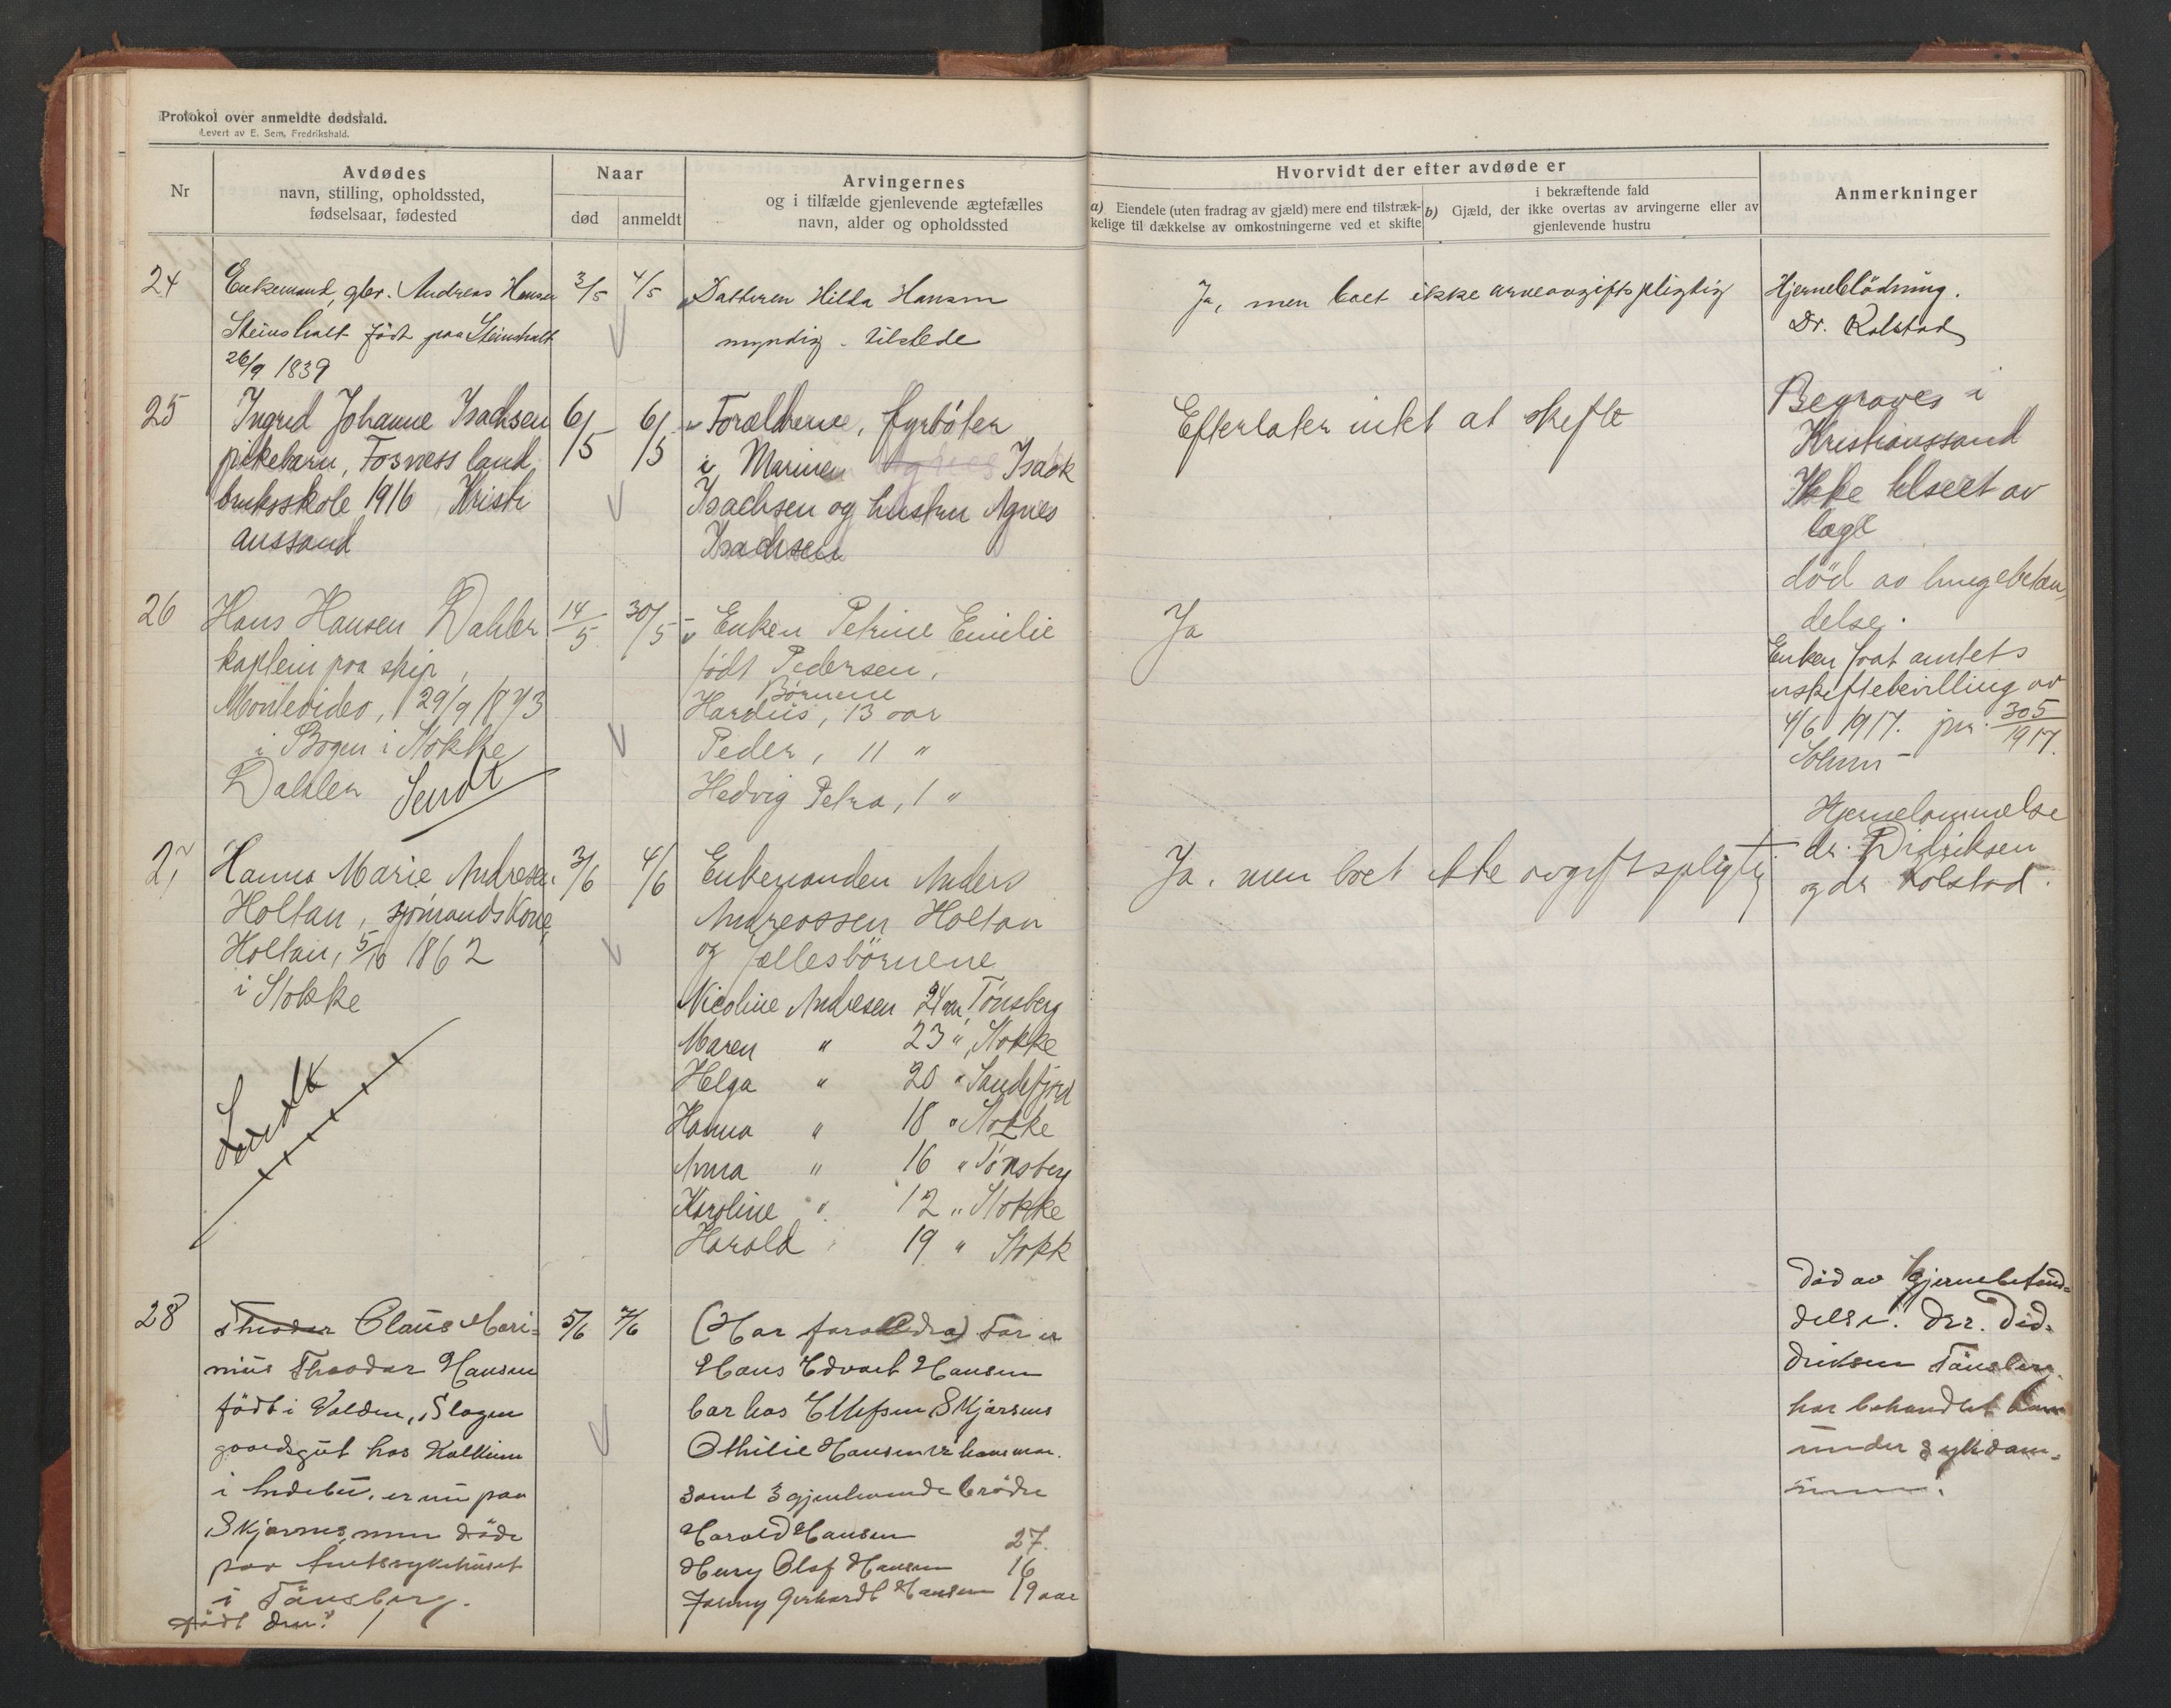 Protokol over anmeldte dødsfald.
Levert av E. Sem, Fredrikshald.
Nr
Avdødes
navn, stilling, opholdssted,
fødselsaar, fødested
Naar
død
anmeldt
Arvingernes
og i tilfælde gjenlevende ægtefælles
navn, alder og opholdssted
Hvorvidt der efter avdøde er
a) Eiendele (uten fradrag av gjæld) mere end tilstræk-
kelige til dækkelse av omkostningerne ved et skifte
i bekræftende fald
b) Gjæld, der ikke overtas av arvingerne eller av
gjenlevende hustru
Anmerkninger
24
Enkemand, gbr. Andreas Hansen
Steinsholt født paa Steinsholt
26/9 1839
3/5
4/5
Datteren Hilda Hansen
myndig - tilstede
Ja, men boet ikke arveavgiftspligtig
Hjerneblödning.
Dr. Kolstad
25
Ingrid Johanne Isachsen
pikebarn, Fosness land
bruksskole 1916 Kristi
anssand
6/5
6/5
Forældrene, fyrbøter
i Marinen Agnes Isack
Isachsen og hustru Agnes
Isachsen
Efterlater intet at skifte
Begraves i
Kristianssand
Ikke tilseet av
læge
død av lungebetæn
delse.
26
Hans Hansen Dahler
kaptein paa skip,
Montevideo, 29/9 1873
i Bogen i Stokke
Dahler Sendt
14/5
30/5
Enken Petrine Emilie
født Pedersen,
Børnene
Hardiis, 13 aar
Peder, 11 "
Hedvig Petra, 1 "
Ja
Enken faat amtets
uskiftebevilling av
4/6 1917. jnr. 305/1917.
27
Hanna Marie Andresen
Holtan, sjømandskone,
Holtan, 5/10 1862
i Stokke
Sendt
3/6
4/6
Enkemanden Anders
Andreassen Holtan
og fællesbörnene
Nicoline Andresen 24 aar, Tønsberg
Maren " 23 " Stokke
Helga " 20 " Sandefjord
Hanna " 18 " Stokke
Anna " 16 " Tönsberg
Karoline " 12 " Stokke
Harald " 19 " Stokk
Ja, men boet ikke avgiftspligtig
Hjernelammelse
dr. Didriksen
og dr Kolstad.
28
Theodor Claus Mari=
nius Theodor Hansen
födt i Valden, Slagen
gaardsgut hos
i Indebu, er nu paa
Skjærsnes, men döde
paa Amtssykehuset
i Tönsberg.
Födt den?
5/6
7/6
(Har forældra) Far er
Hans Edvart Hansen
bor hos Ellefsen Skjærsnes
Othilie Hansen er hans mor.
samt 3 gjenlevende brödre
Harald Hansen 27.
Henry Olaf Hansen 16
Gerhardt Hansen 19 aar
Död av hjernebetend=
delse. Dr. Did=
driksen Tönsberg
har behandlet ham
under sykdom=
men.